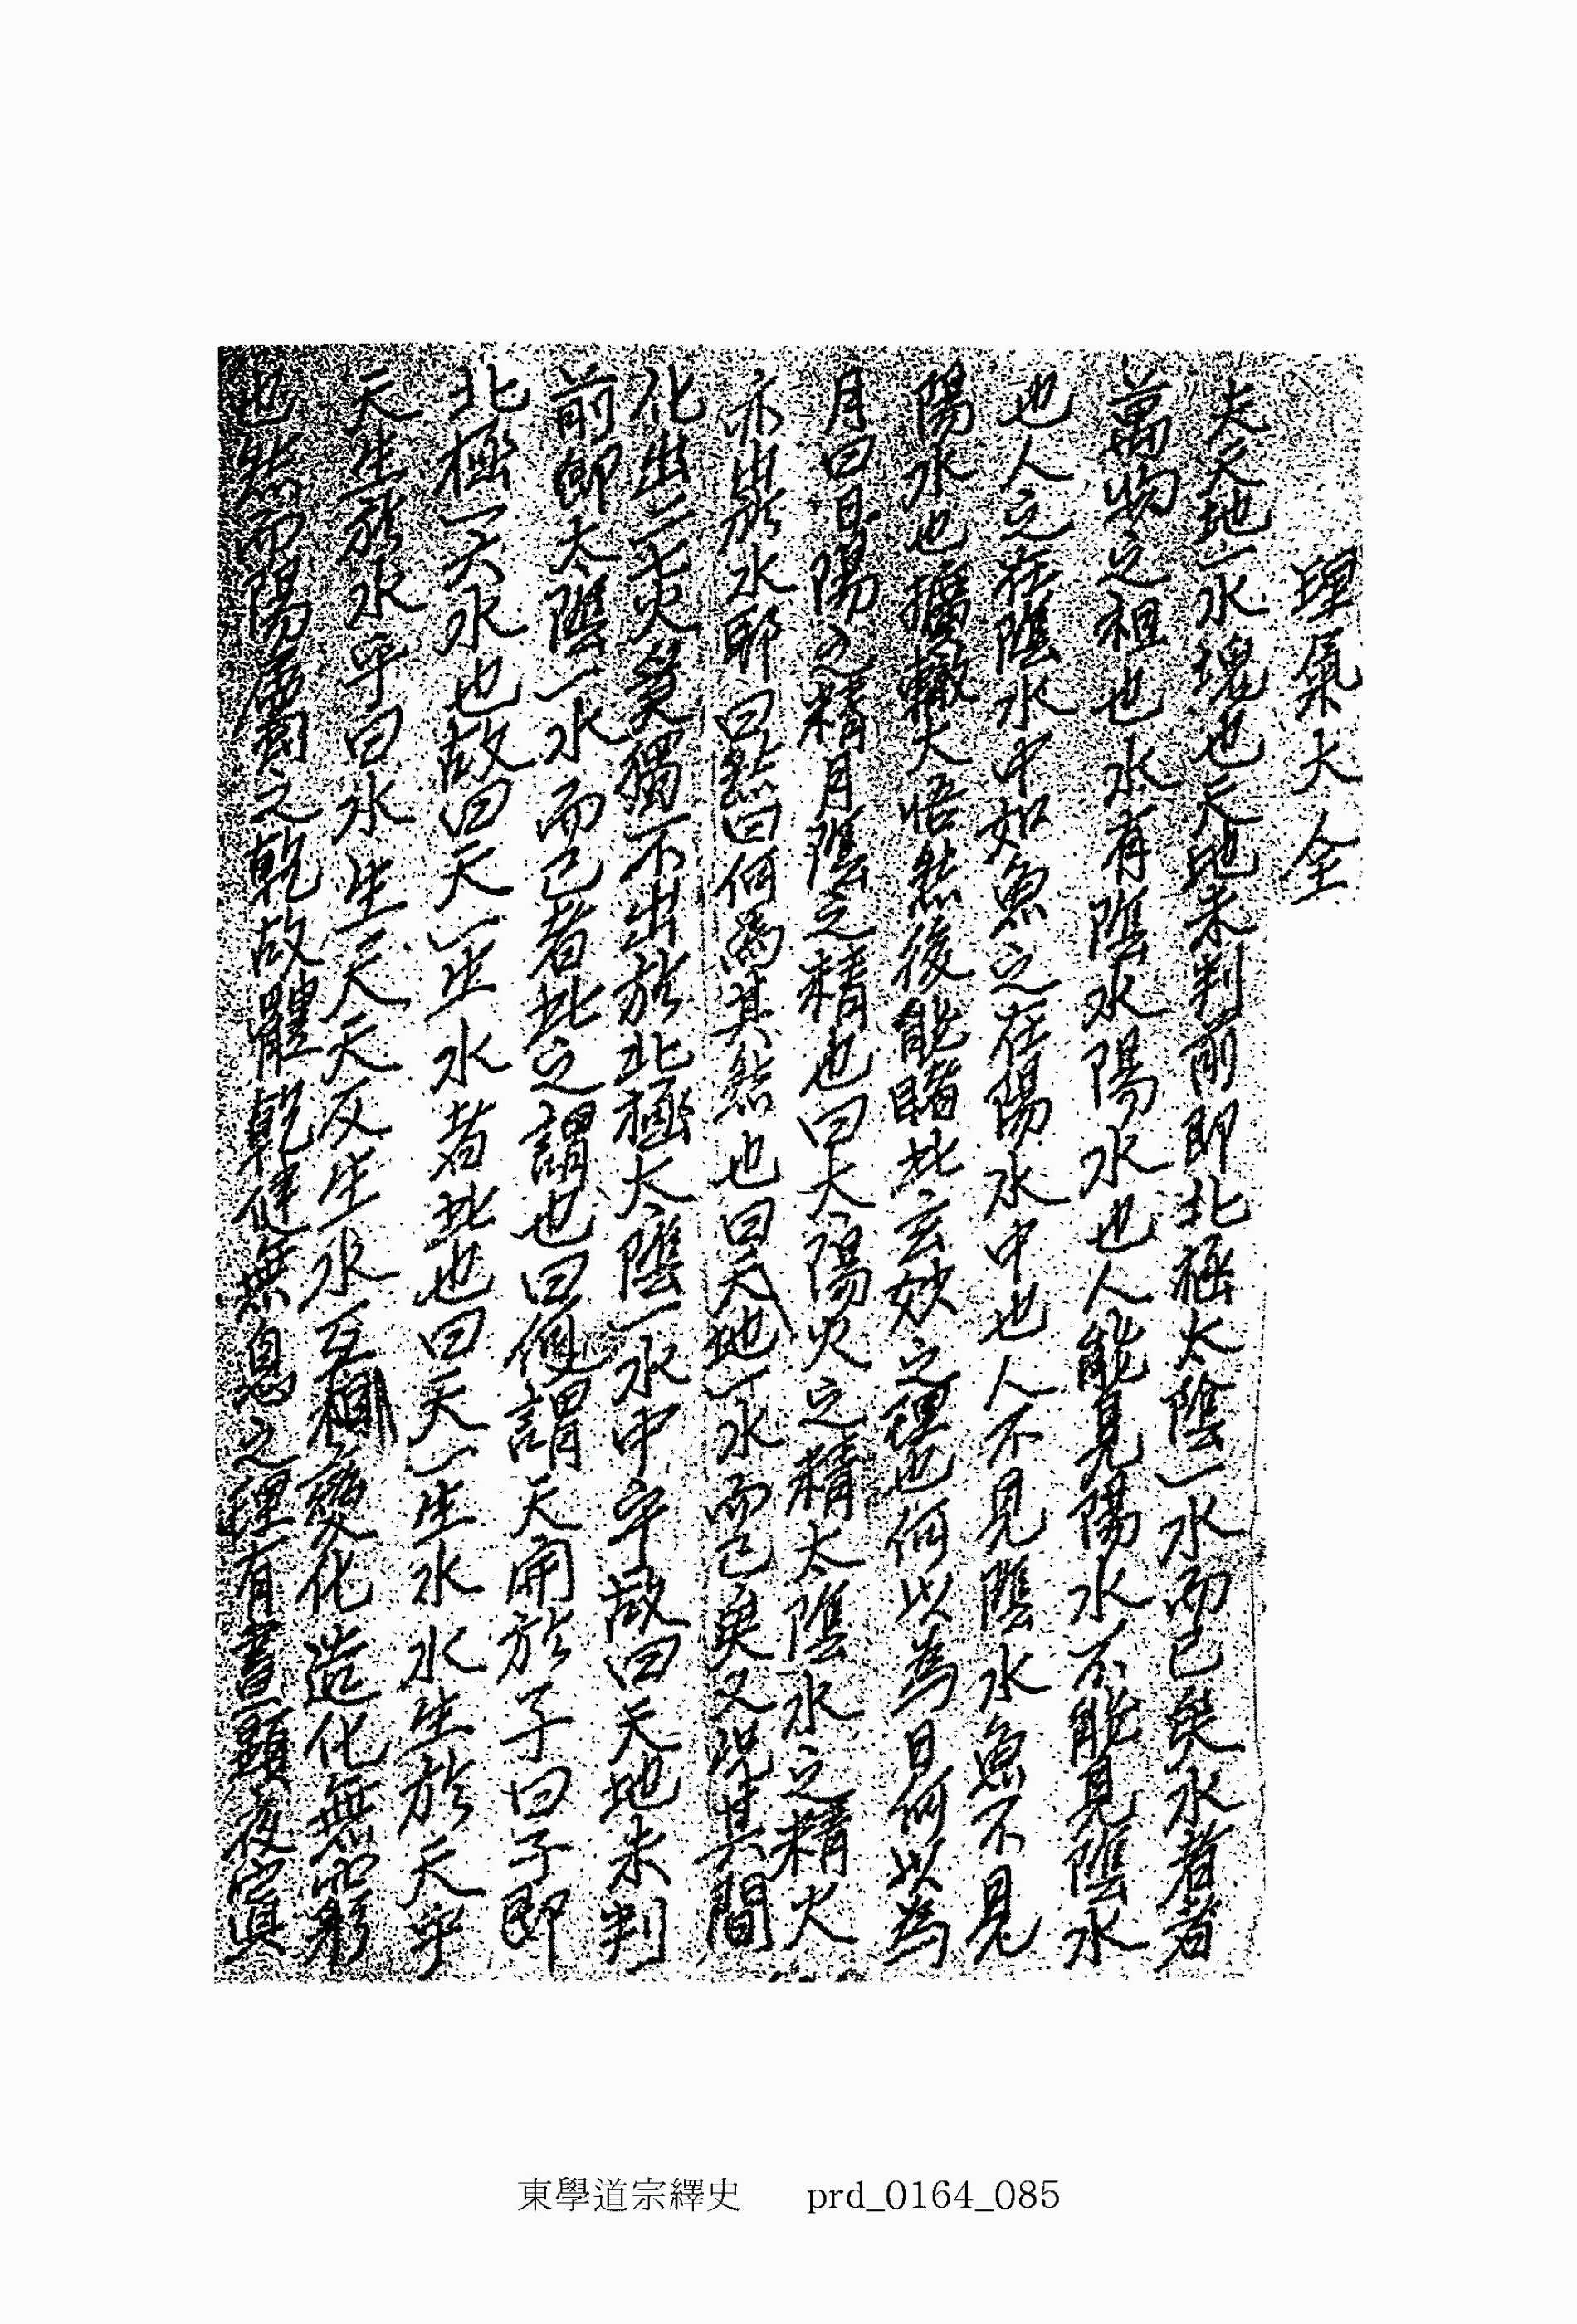 理氣大全
夫天地一水塊也天地未判前即北極太陰一水而已矣水者者
萬物之祖也水有陰水陽水也人能見陽水不能見陰水
也人之在陰水中如魚之在陽水中也人不見陰水魚不見
陽水也擴轍大悟然後能睹此玄妙之理也何以為日何以為
月曰日陽之精月陰之精也曰太陽火之精太陰水之精火
亦出於水耶曰然曰何為其然也曰天地一水而已矣又況其間
化出二七火矣獨不出於北極太陰一水中乎故曰天地未判
前即太陰一水而已者此之謂也曰何謂天開於子曰子即
北極一六水也故曰天一生水者此也曰天一生水水生於天乎
天生於水乎曰水生天天反生水互相變化造化無窮
也然而陽屬之乾故體乾健無息之理有晝顯夜冥